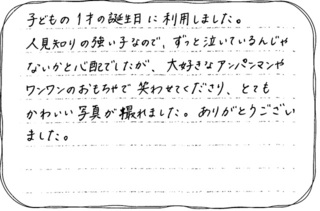 子どもの1才の誕生日に利用しました。
人見知りの強い子なので、ずっと泣いているんじゃ
ないかと心配でしたが、大好きなアンパンマンや
ワンワンのおもちゃで笑わせてくださり、とても
かわいい写真が撮れました。ありがとうござい
ました。